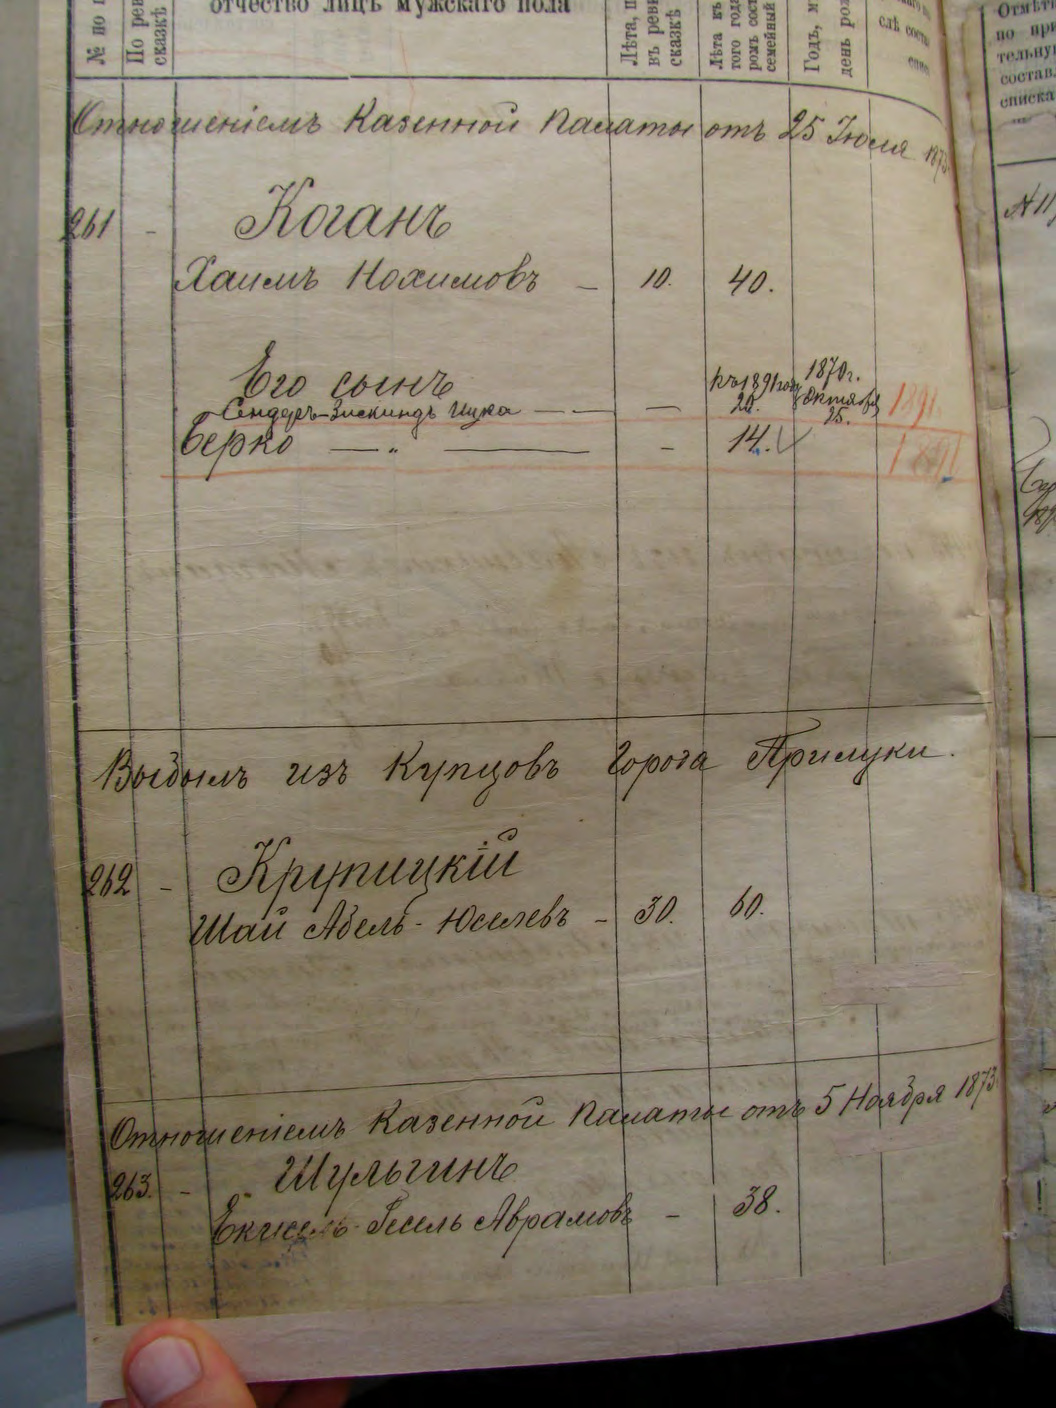 отчество лицъ мужскаго пола
№ по
По рев
сказкѣ
Лѣта, п
въ реви
сказкѣ
Лѣта къ
того года
ромъ сост
семейный
Годъ, м
день рож
слѣ соста
Отмѣт
по при
тельну
состав.
списка
Отношеніемъ Казенной Палаты отъ 25 Іюля 1873
261 - Коганъ
Хаимъ Нохимовъ - 10. 40.
Его сынъ
Сендеръ-Зискиндъ Ицка — — къ 1891 году 20. 1870 г. Октября 25. 1891
Берко — " — - 14. 1891
Выбылъ изъ Купцовъ Города Прилуки.
262 - Крупицкій
Шай Абель-Юселевъ - 30. 60.
Отношеніемъ Казенной Палаты отъ 5 Ноября 1873
263. - Шульгинъ
Екисель-Гесель Аврамовъ - 38.